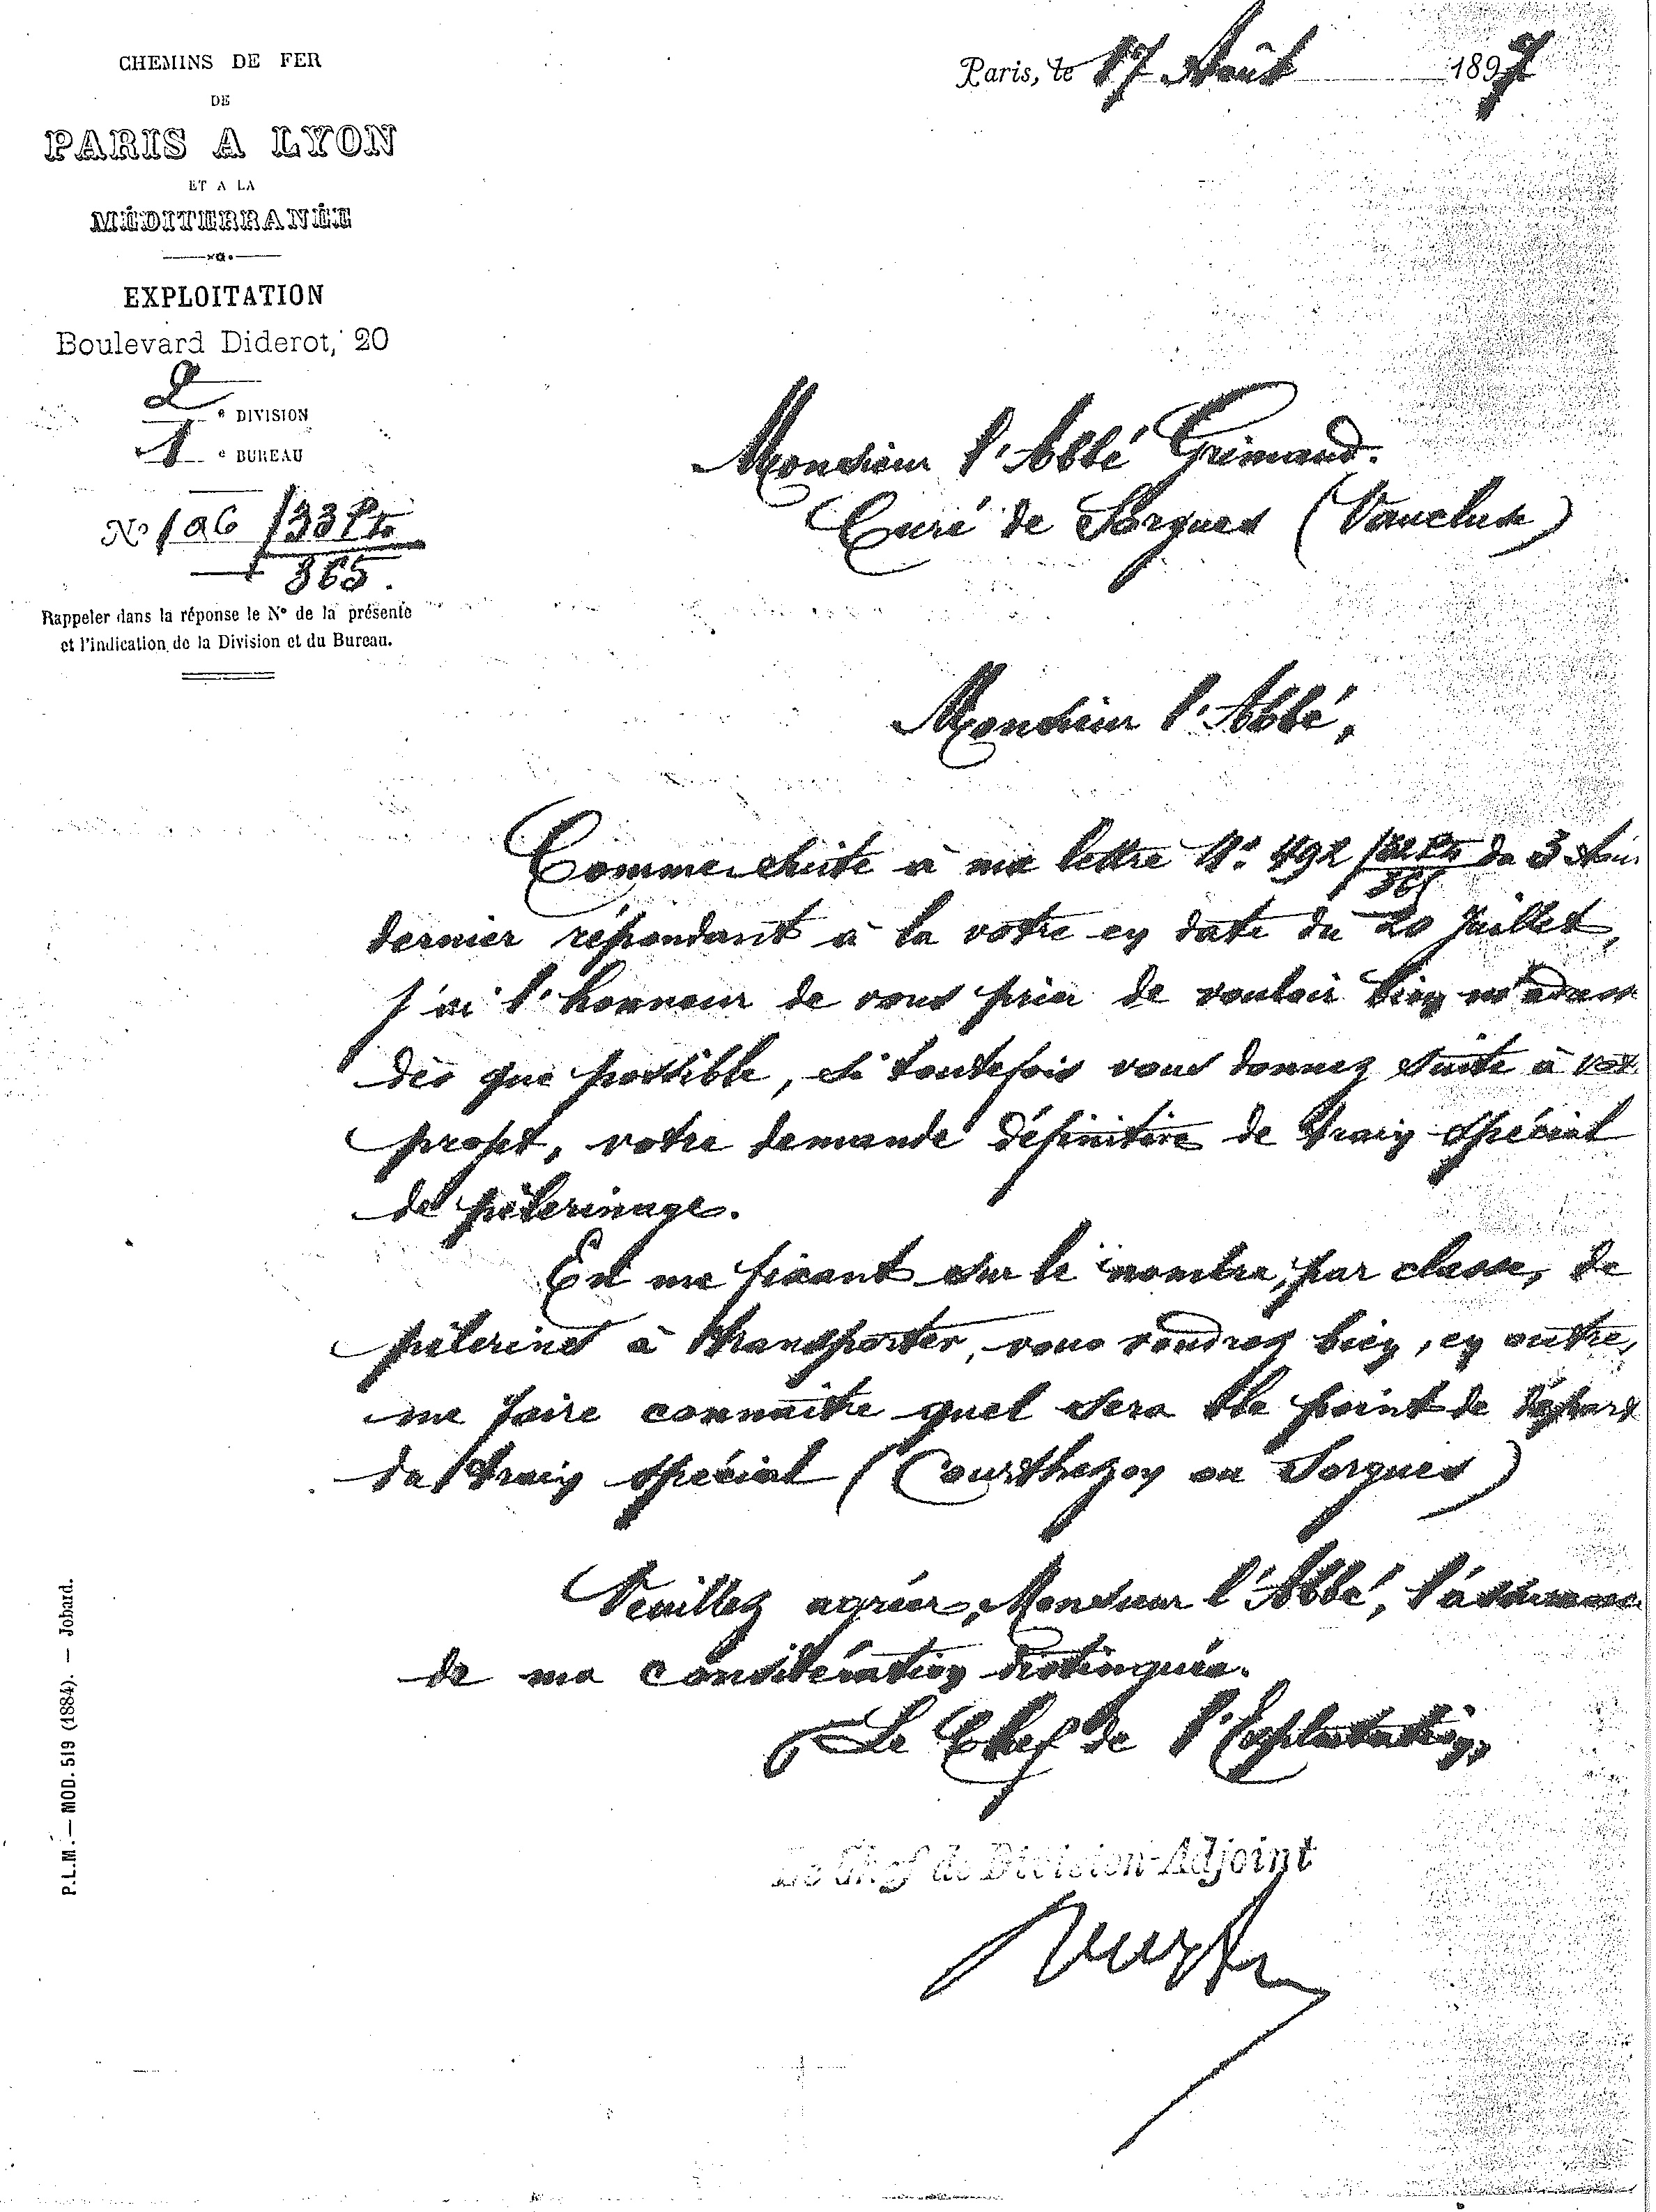 CHEMINS DE FER
DE
PARIS A LYON
ET A LA
MÉDITERRANÉE
EXPLOITATION
Boulevard Diderot, 20
2e DIVISION
1e BUREAU
No 196 /33 Pte
365.
Rappeler dans la réponse le No de la présente
et l'indication de la Division et du Bureau.
Paris, le 17 Août 1897
Monsieur l'Abbé Grimaud.
Curé de Sorgues (Vaucluse)
Monsieur l'Abbé,
Comme suite à ma lettre No 492 du 3 Aoû
dernier répondant à la votre en date du 20 Juillet,
j'ai l'honneur de vous prier de vouloir bien m'adres
dès que possible, si toutefois vous donnez suite à vot
projet, votre demande définitive de train spécial
de pèlerinage.
En me fixant sur le nombre, par classe, de
pèlerins à transporter, vous voudrez bien, en outre,
me faire connaître quel sera le point de départ
du train spécial (Courthezon ou Sorgues)
Veuillez agréer, Monsieur l'Abbé, l'assurance
de ma considération distinguée.
Le Chef de l'Exploitation,
Le Chef de Division-Adjoint
P.L.M. — MOD. 519 (1884). — Jobard.